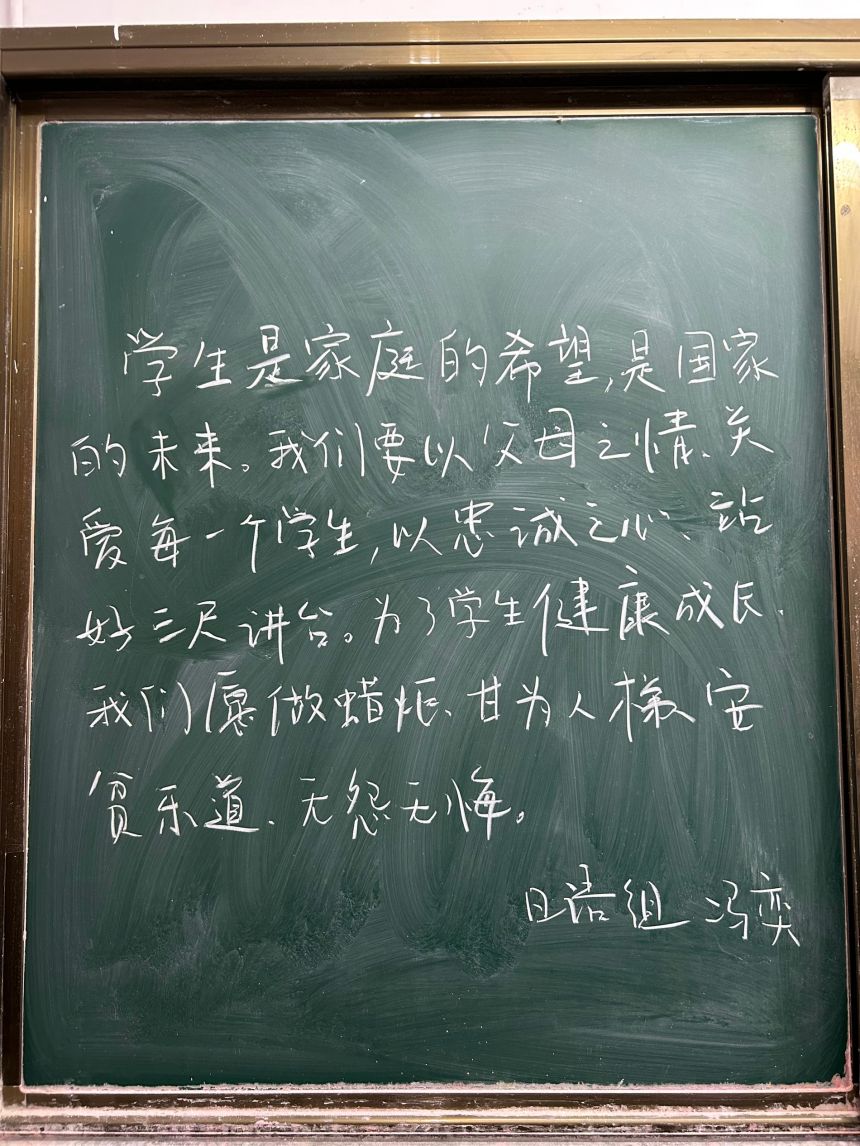 学生是家庭的希望,是国家
的未来。我们要以父母之情、关
爱每一个学生,以忠诚之心、站
好三尺讲台。为了学生健康成长、
我们愿做蜡炬、甘为人梯、安
贫乐道、无怨无悔。
日语组 冯奕